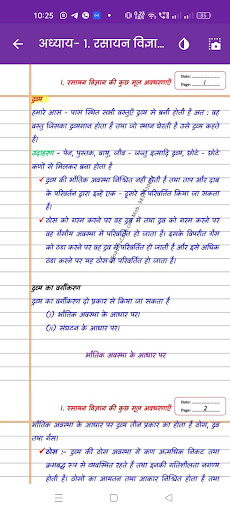 10:25
85
अध्याय- 1. रसायन विज्ञा...
1. रसायन विज्ञान की कुछ मूल अवधारणाएँ
Date:
Page: 1
द्रव्य
हमारे आस - पास स्थित सभी वस्तुएँ द्रव्य से बनी होती है अत : वह
वस्तु जिसका द्रव्यमान होता है तथा जो स्थान घेरती है उसे द्रव्य कहते
हैं।
उदाहरण - पेन, पुस्तक, वायु, जीव - जन्तु इत्यादि द्रव्य, छोटे - छोटे
कणों से मिलकर बना होता है
✓ द्रव्य की भौतिक अवस्था निश्चित नहीं होती है तथा ताप और दाब
के परिवर्तन द्वारा इन्हें एक - दूसरे में परिवर्तित किया जा सकता
है।
✓ ठोस को गरम करने पर वह द्रव में तथा द्रव को गरम करने पर
वह गैसीय अवस्था में परिवर्तित हो जाती है। इसके विपरीत गैस
को ठंडा करने पर वह द्रव में परिवर्तित हो जाती है और इसे अधिक
ठंडा करने पर यह ठोस में परिवर्तित हो जाता है।
द्रव्य का वर्गीकरण
द्रव्य का वर्गीकरण दो प्रकार से किया जा सकता है
(i) भौतिक अवस्था के आधार पर।
(ii) संघटन के आधार पर।
भौतिक अवस्था के आधार पर
1. रसायन विज्ञान की कुछ मूल अवधारणाएँ
Date:
Page: 2
भौतिक अवस्था के आधार पर द्रव्य तीन प्रकार का होता है ठोस, द्रव
तथा गैस।
✓ ठोस :- द्रव्य की ठोस अवस्था में कण अत्यधिक निकट तथा
क्रमबद्ध रूप से व्यवस्थित रहते हैं तथा इनकी गतिशीलता नगण्य
होती है। ठोसों का आयतन तथा आकार निश्चित होता है तथा